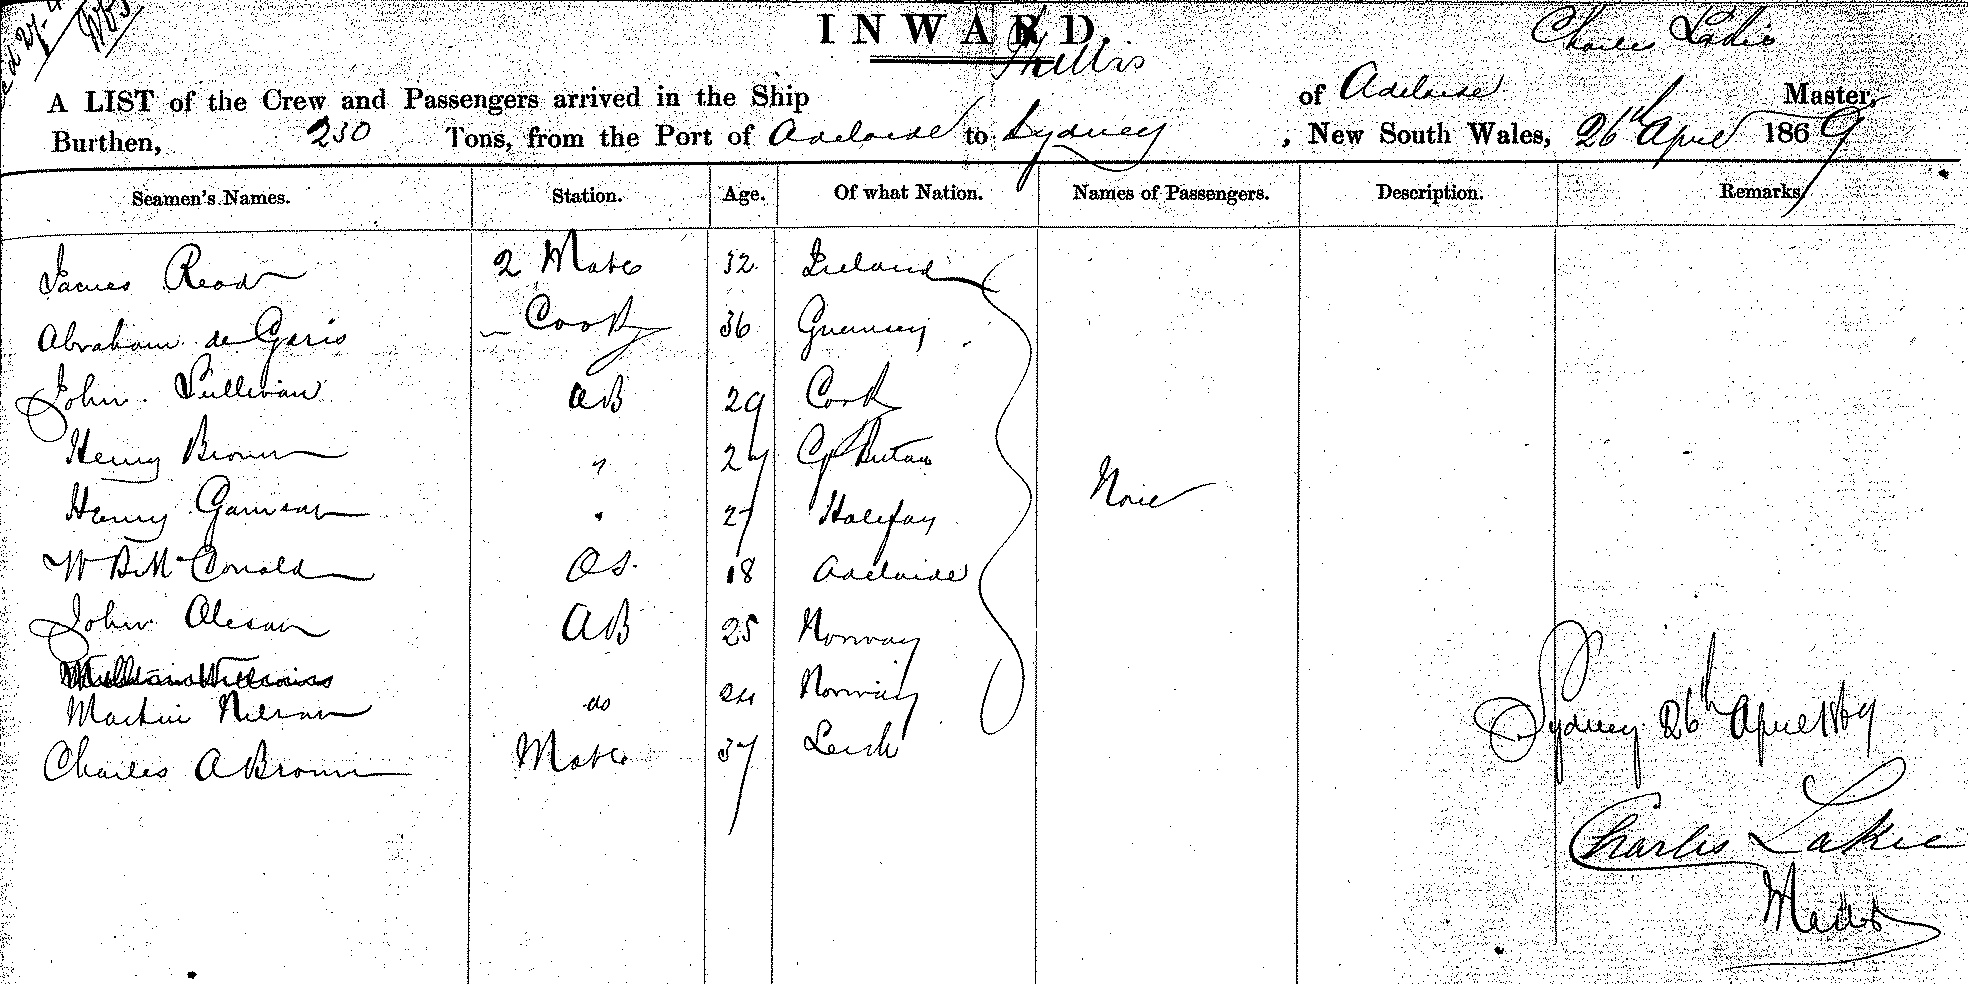 INWARD.
Phillis
Charles Lakie
A LIST of the Crew and Passengers arrived in the Ship of Adelaide Master,
Burthen, 250 Tons, from the Port of Adelaide to Sydney, New South Wales, 26th April 1869
Seamen's Names. Station. Age. Of what Nation. Names of Passengers. Description. Remarks
James Read 2 Mate 32 Ireland
Abraham de Garis Cook 36 Guernsey
John Sullivan AB 29 Cork
Henry Brown " 27
Henry 27 Halifax
None
W B McDonald OS. 18 Adelaide
John Olesan AB 25 Norway
Martin Nilsan do 24 Norway
Charles A Brown Mate 37 Leith
Sydney 26th April 1869
Charles Lakie
Master